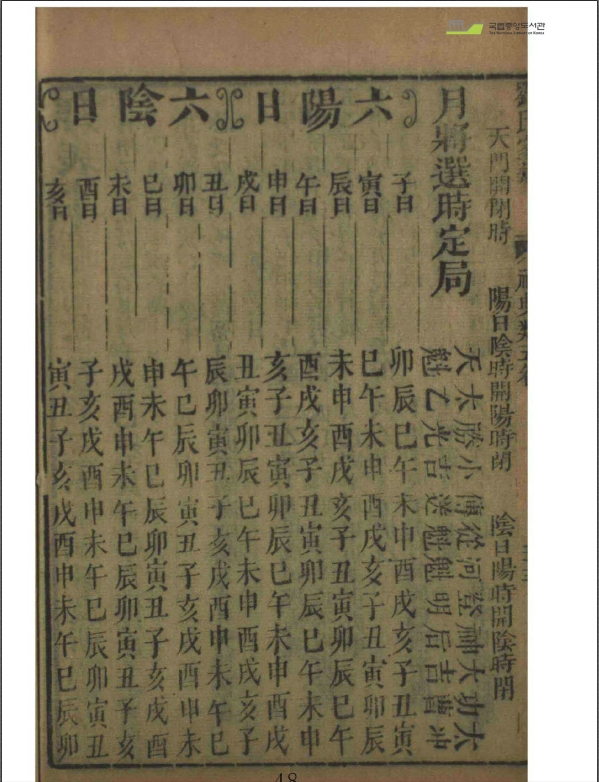 국립중앙도서관
THE NATIONAL LIBRARY OF KOREA
天門開閉時 陽日陰時開陽時閉 陰日陽時開陰時閉
月將選時定局
天太勝小傳從河登神大功太
魁乙光吉送魁魁明后吉曹冲
六陽日
子日 卯辰巳午未申酉戌亥子丑寅
寅日 巳午未申酉戌亥子丑寅卯辰
辰日 未申酉戌亥子丑寅卯辰巳午
午日 酉戌亥子丑寅卯辰巳午未申
申日 亥子丑寅卯辰巳午未申酉戌
戌日 丑寅卯辰巳午未申酉戌亥子
六陰日
丑日 辰卯寅丑子亥戌酉申未午巳
卯日 午巳辰卯寅丑子亥戌酉申未
巳日 申未午巳辰卯寅丑子亥戌酉
未日 戌酉申未午巳辰卯寅丑子亥
酉日 子亥戌酉申未午巳辰卯寅丑
亥日 寅丑子亥戌酉申未午巳辰卯
48